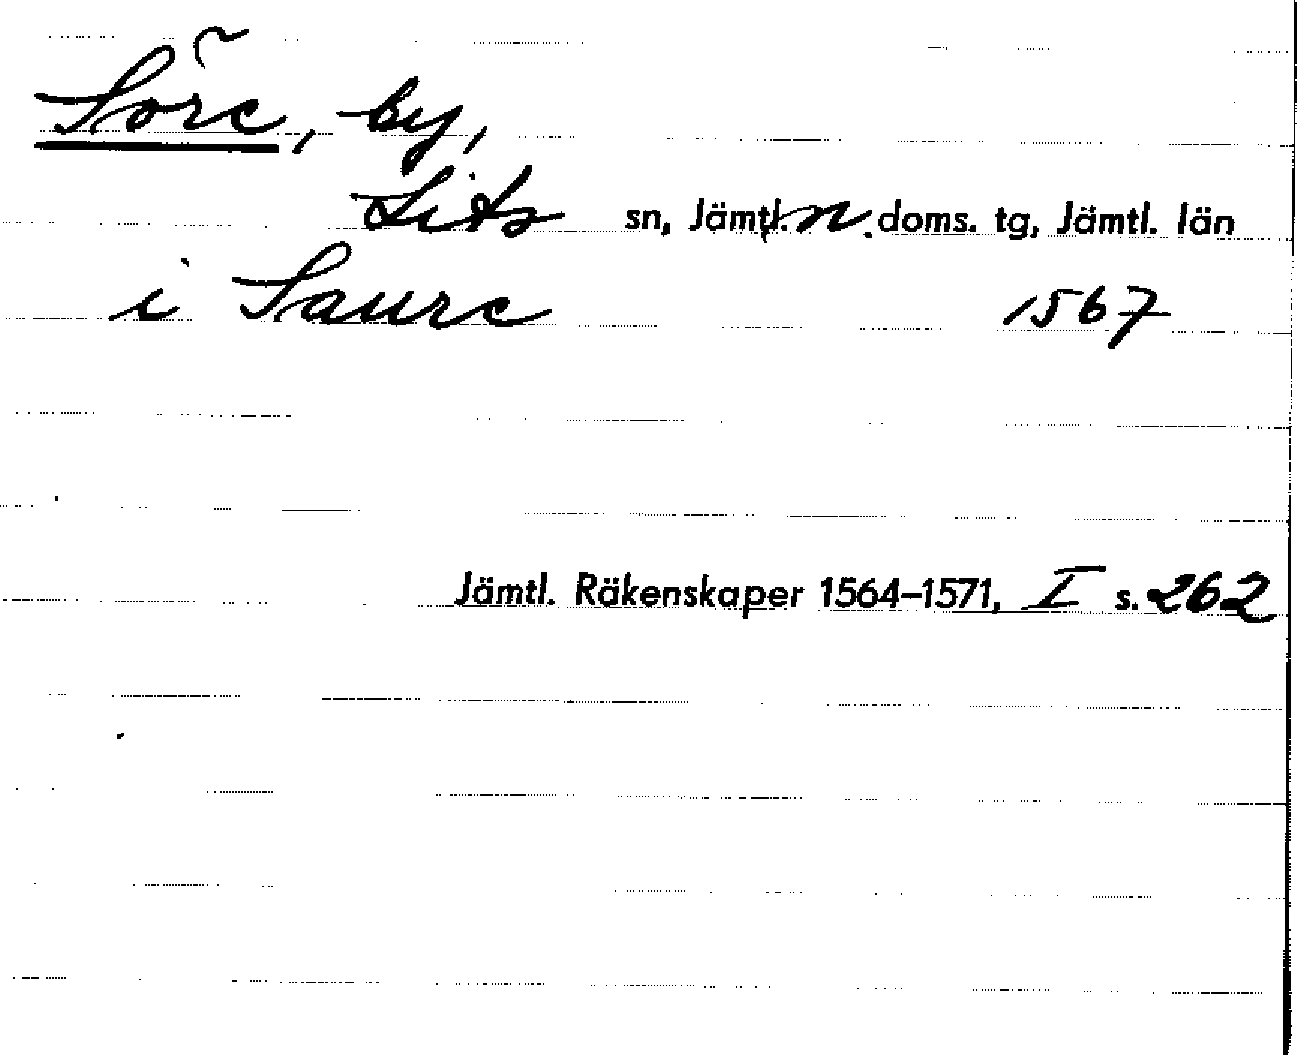 Söre, by,
Lits sn, Jämtl. n. doms. tg, Jämtl. län
i Saure 1567
Jämtl. Räkenskaper 1564–1571, I s. 262